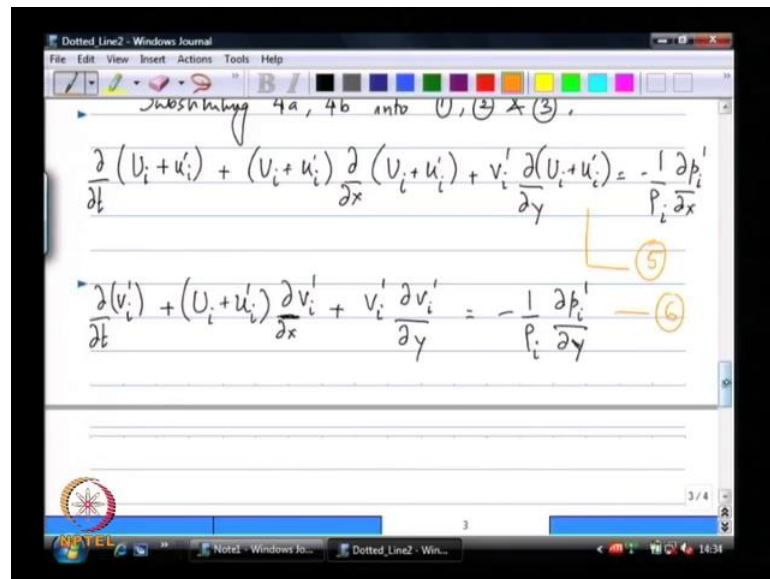 Dotted_Line2 - Windows Journal
File Edit View Insert Actions Tools Help
B I
Substituting 4a, 4b into ①, ② & ③.
∂/∂t (U_i + u_i') + (U_i + u_i') ∂/∂x (U_i + u_i') + v_i' ∂(U_i + u_i')/∂y = - 1/ρ_i ∂p_i'/∂x
⑤
∂(v_i')/∂t + (U_i + u_i') ∂v_i'/∂x + v_i' ∂v_i'/∂y = - 1/ρ_i ∂p_i'/∂y — ⑥
3/4
3
NPTEL
Note1 - Windows Jo...
Dotted_Line2 - Win...
14:34